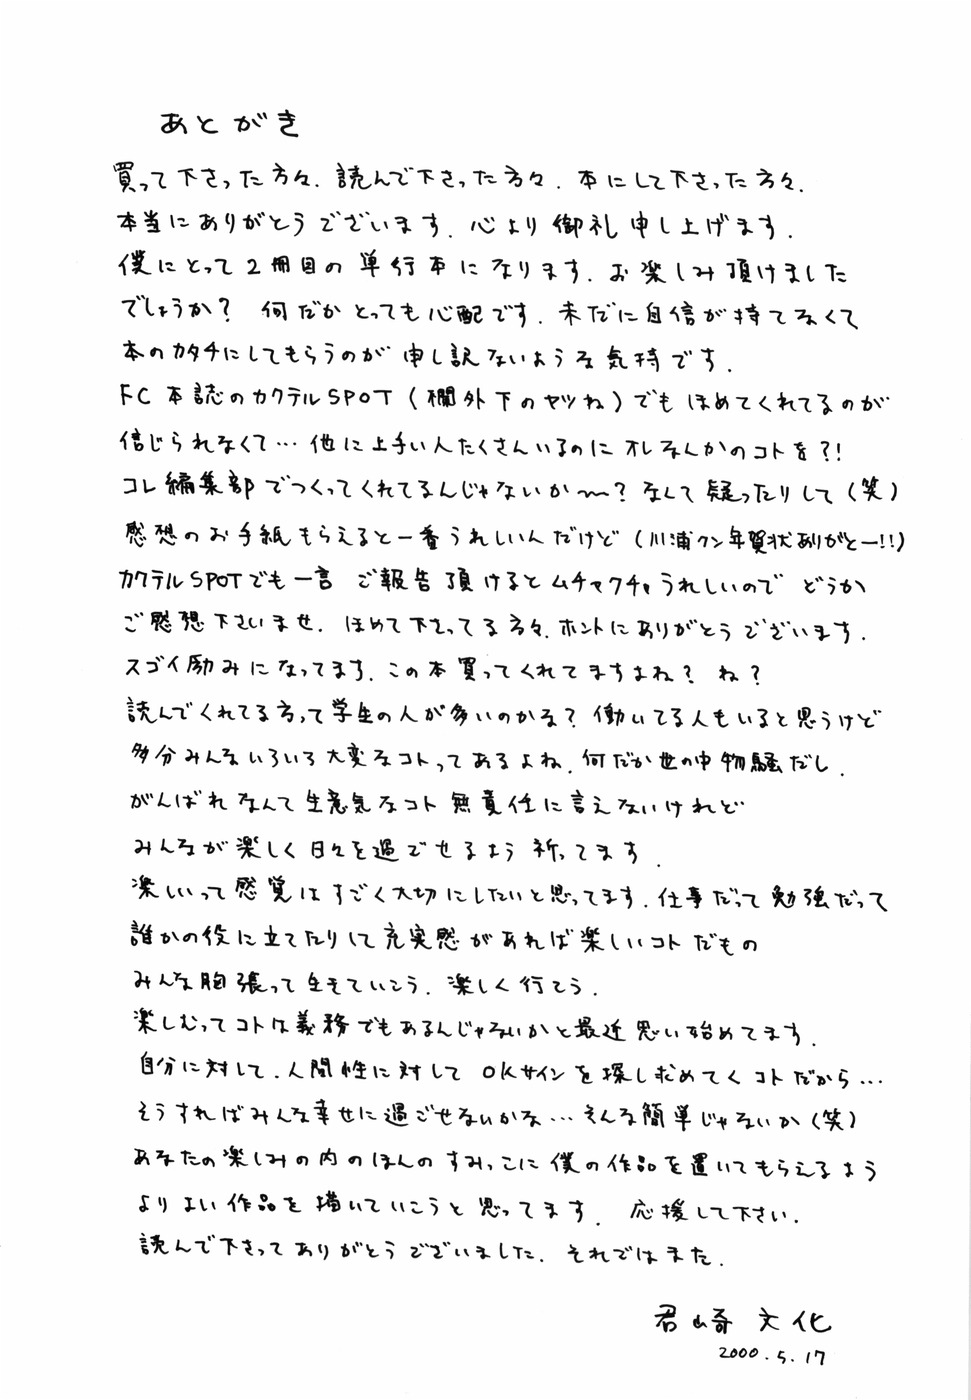 あとがき
買って下さった方々、読んで下さった方々、本にして下さった方々、
本当にありがとうございます。心より御礼申し上げます。
僕にとって2冊目の単行本になります。お楽しみ頂けました
でしょうか？ 何だかとっても心配です。未だに自信が持てなくて
本のカタチにしてもらうのが申し訳ないような気持です。
FC本誌のカクテルSPOT（欄外下のヤツね）でもほめてくれてるのが
信じられなくて…他に上手い人たくさんいるのにオレなんかのコトを？!
コレ編集部でつくってくれてるんじゃないか〜？なんて疑ったりして（笑）
感想のお手紙もらえると一番うれしいんだけど（川浦クン年賀状ありがとー!!）
カクテルSPOTでも一言ご報告頂けるとムチャクチャうれしいのでどうか
ご感想下さいませ。ほめて下さってる方々、ホントにありがとうございます。
スゴイ励みになってます。この本買ってくれてますよね？ ね？
読んでくれてる方って学生の人が多いのかな？働いてる人もいると思うけど
多分みんないろいろ大変なコトってあるよね。何だか世の中物騒だし。
がんばれなんて生意気なコト無責任に言えないけれど
みんなが楽しく日々を過ごせるよう祈ってます。
楽しいって感覚はすごく大切にしたいと思ってます。仕事だって勉強だって
誰かの役に立てたりして充実感があれば楽しいコトだもの
みんな胸張って生きていこう。楽しく行こう。
楽しむってコトは義務でもあるんじゃないかと最近思い始めてます。
自分に対して、人間性に対してOKサインを探し求めてくコトだから…
そうすればみんな幸せに過ごせないかな…そんな簡単じゃないか（笑）
あなたの楽しみの内のほんのすみっこに僕の作品を置いてもらえるよう
よりよい作品を描いていこうと思ってます。 応援して下さい。
読んで下さってありがとうございました。それではまた。
君崎 文化
2000.5.17